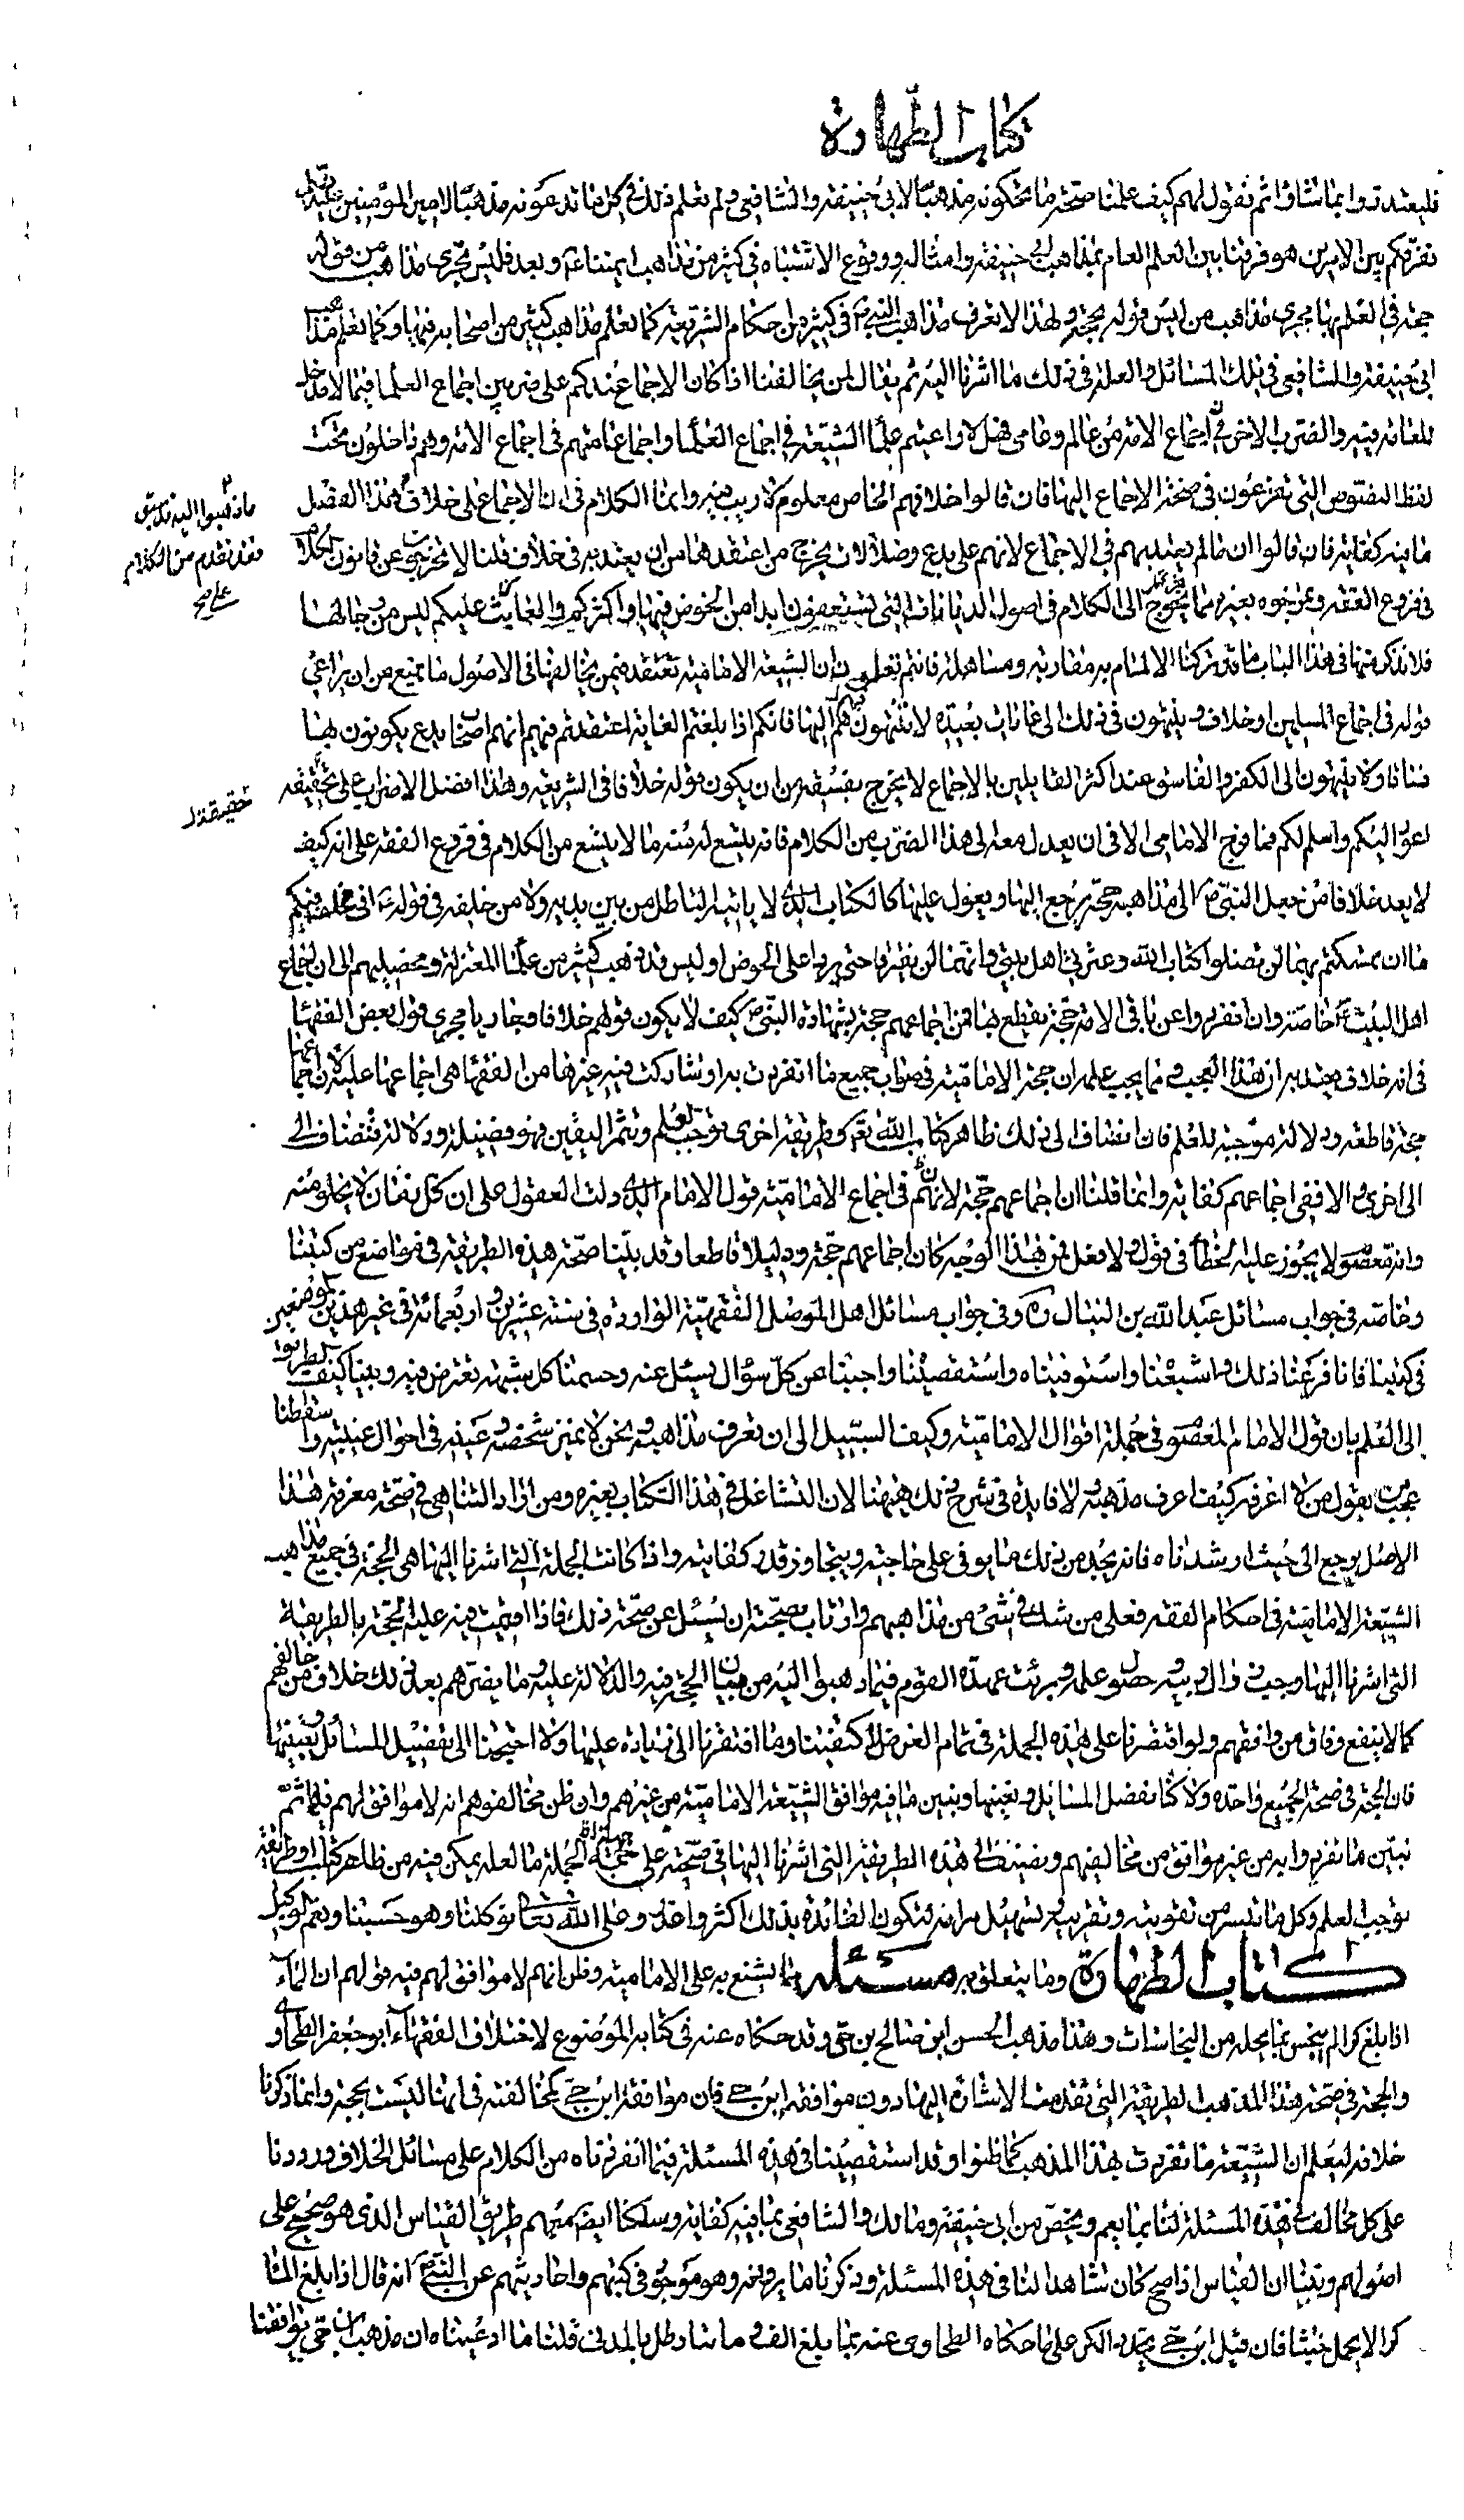 كتاب الطهارة
فليعتدوا بما شاؤا ثم نقول لهم كيف علمنا صحة ما تحكونه مذهبا لابى حنيفة والشافعى ولم نعلم ذلك فى كل ما تدعونه مذهبا لامير المؤمنين
نفرقكم بين الامرين هو فرقنا بين العلم العام بمذاهب ابى حنيفة وامثاله ووقوع الاشتباه فى كثير من مذاهب ائمتنا ع وبعد فليس يجرى مذاهب من قوله
حجة فى العلم بها مجرى مذاهب من ليس قوله بحجة ولهذا لا نعرف مذاهب النبى ص فى كثير من احكام الشريعة كما نعلم مذاهب كثير من اصحابه فيها وكما نعلم مذاهب
ابى حنيفة والشافعى فى تلك المسائل والعلة فى ذلك ما اشرنا اليه ثم يقال لمن يخالفنا اذا كان الاجماع عندكم على ضربين اجماع العلماء فيما لا مدخل
للعامة فيه والضرب الاخر اجماع الامة من عالم وعامى فهلا راعيتم علماء الشيعة فى اجماع العلماء واجماع عامتهم فى اجماع الامة وهم داخلون تحت
لفظ النصوص التى تفزعون فى صحة الاجماع اليها فان قالوا خلافهم الخاص معلوم لا ريب فيه وانما الكلام فى ان الاجماع على خلافه فى هذا الفصل
ما فيه كفاية فان قالوا انما لم يعتد بهم فى الاجماع لانهم على بدع وضلالات يخرج من اعتقدها من ان يعتد به فى خلاف قلنا لا تخرجوا عن قانون الكلام
فى فروع الفقه وتمزجوه بغيره مما يحوج الى الكلام فى اصول الديانات التى تستعفون ابدا من الخوض فيها واكثركم والغايث عليكم ليس من رجالها
فلا نذكر منها فى هذا الباب ما قد تركنا الالمام به مقاربة ومساهلة فانتم تعلمون ان الشيعة الامامية تعتقد فيمن يخالفها فى الاصول ما تمنع من ان يراعى
قوله فى اجماع المسلمين او خلاف وينتهون فى ذلك الى غايات بعيدة لا تنتهون انتم اليها فانكم اذا بلغتم الغاية اعتقدتم فيهم انهم اصحاب بدع يكونون بها
فساقا ولا ينتهون الى الكفر والفاسق عند اكثر القايلين بالاجماع لا يخرج بفسقه من ان يكون قوله خلافا فى الشريعة وهذا افضل الاضراب على تحقيقه
اعود اليكم واسلم لكم فما فرج الامامى الا فى ان يعدل معه الى هذا الضرب من الكلام فانه يتسع له منه ما لا يتسع من الكلام فى فروع الفقه على انه كيف
لا يعد خلافا من جعل النبى ص الى مذاهبه حجة يرجع اليها ويعول عليها كالكتاب الذى لا ياتيه الباطل من بين يديه ولا من خلفه فى قوله ع انى مخلف فيكم
ما ان تمسكتم بهما لن تضلوا كتاب الله وعترتى اهل بيتى وانهما لن يفترقا حتى يردا على الحوض او ليس قد ذهب كثير من علماء المعتزلة ومحصليهم الى ان اجماع
اهل البيت ع خاصة وان انفردوا عن باقى الامة حجة يقطع بها فمن اجماعهم حجة بشهادة النبى ص كيف لا يكون قولهم خلافا وجاريا مجرى قول بعض الفقهاء
فى انه خلاف يعتد به ان هذا لعجيب ومما يجب علمه ان حجة الامامية فى صواب جميع ما انفردت به او شاركت فيه غيرها من الفقهاء هى اجماعها عليه لان اجماعها
حجة قاطعة ودلالة موجبة للعلم فان انضاف الى ذلك ظاهر كتاب الله تع او طريقة اخرى توجب العلم وتثمر اليقين فهو فضيلة ودلالة تنضاف الى
الى اخرى والا ففى اجماعهم كفاية وانما قلنا ان اجماعهم حجة لان فى اجماع الامامية قول الامام الذى دلت العقول على ان كل زمان لا يخلو منه
وانه معصوم لا يجوز عليه الخطأ فى قول ولا فعل فمن هذا الوجه كان اجماعهم حجة ودليلا قاطعا وقد بينا صحة هذه الطريقة فى مواضع من كتبنا
وخاصة فى جواب مسائل عبد الله بن التبان ره وفى جواب مسائل اهل الموصل الفقهية الواردة فى سنة عشرين واربعمائة فى غير هذين الموضعين
فى كتبنا فانا فرعنا ذلك واشبعناه واستوفيناه واستقصيناه واجبنا عن كل سؤال يسئل عنه وحسمنا كل شبهة تعترض فيه وبينا كيف الطريق
الى العلم بان قول الامام المعصوم فى جملة اقوال الامامية وكيف السبيل الى ان نعرف مذاهبه ونحن لا نميز شخصه وعينه فى احوال غيبته واسقطنا
عجب من يقول من لا اعرفه كيف اعرف مذهبه ولا فايدة فى شرح ذلك هيهنا لان التشاغل فى هذا الكتاب بغيره ومن اراد التناهى فى صحة معرفة هذا
الاصل يرجع الى حيث ارشدناه فانه يجد من ذلك ما يوفى على حاجته ويتجاوز قدر كفايته واذا كانت الجملة التى اشرنا اليها هى الحجة فى جميع مذاهب
الشيعة الامامية فى احكام الفقه فعلى من شك فى شىء من مذاهبهم وارتاب بصحته ان يسئل عن صحة ذلك فاذا اقيمت فيه عليه الحجة بالطريقة
التى اشرنا اليها وجب زوال ريبه وحصول علمه وبرئت عهدة القوم فيما ذهبوا اليه من بيان الحجة فيه والدلالة عليه وما يضرهم بعد ذلك خلاف من خالفهم
كما لا ينفع وفاق من وافقهم ولو اقتصرنا على هذه الجملة فى تمام الغرض لاكتفينا وما افتقرنا الى زيادة عليها ولا احتجنا الى تفصيل المسائل وتعيينها
فان الحجة فى صحة الجميع واحدة ولكنا نفصل المسائل ونعينها ونبين ما فيه موافق الشيعة الامامية من غيرهم وان ظن مخالفوهم انه لا موافق لهم فيها ثم
نبين ما تفردوا به من غير موافق من مخالفيهم ونضيف الى هذه الطريقة التى اشرنا اليها فى صحته على جهة الجملة ما لعله يمكن فيه من ظاهر كتاب او طريقة
توجب العلم وكل ما تيسر من تقويته وتقريبه وتسهيل مرامه لتكون الفائدة بذلك اكثر واغزر وعلى الله تعالى توكلنا وهو حسبنا ونعم الوكيل
كتاب الطهارة وما يتعلق به مسئلة مما يشنع به على الامامية وظن انهم لا موافق لهم فيه قولهم ان الماء
اذا بلغ كرا لم ينجس بما يحله من النجاسات وهذا مذهب الحسن ابن صالح بن حى وقد حكاه عنه فى كتابه الموضوع لاختلاف الفقهاء ابو جعفر الطحاوى
والحجة فى صحة هذا المذهب الطريقة التى تقدمت الاشارة اليها دون موافقة ابن حى فان موافقة ابن حى كمخالفته فى انها ليست بحجة وانما ذكرنا
خلافه ليعلم ان الشيعة ما تفردت بهذا المذهب كما ظنوا وقد استقصينا فى هذه المسئلة فيما افردناه من الكلام على مسائل الخلاف ورددنا
على كل مخالف فى هذه المسئلة لنا بما يعم ويخص من ابى حنيفة ومالك والشافعى بما فيه كفاية وسلكنا ايضا معهم طريق القياس الذى هو صحيح على
اصولهم وبينا ان القياس اذا صح كان شاهدا لنا فى هذه المسئلة وذكرنا ما يروونه وهو موجود فى كتبهم واحاديثهم عن النبى ص انه قال اذا بلغ الماء
كرا لا يحمل خبثا فان قيل ابن حى يحدد الكر على ما حكاه الطحاوى عنه بما بلغ الف وماتا رطل بالمدنى قلنا ما ادعينا ان مذهب ابن حى يوافقنا
ما ذهبوا اليه
فقد تقدم من الكلام
على صح